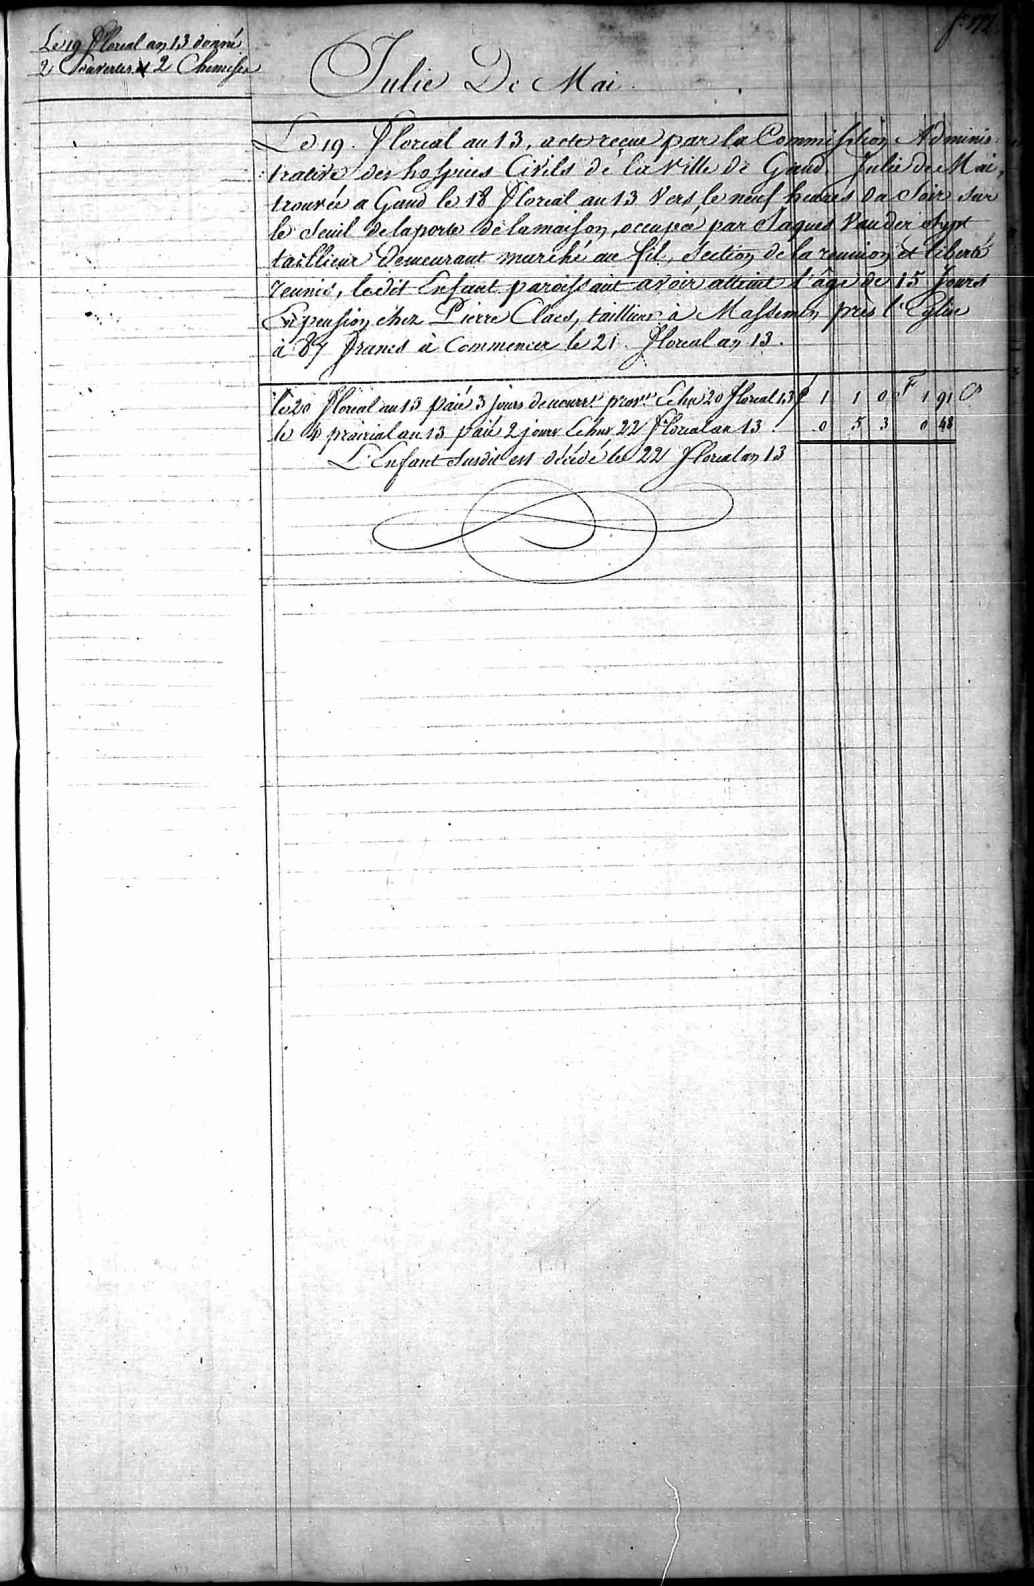 Le 19 floreal an 13 donné
2 Couvertes et 2 Chemises
Julie De Mai
Le 19. floreal an 13, acte reçue par la Commission Adminis-
trative des hospices Civils de la Ville de Gand. Julie de Mai,
trouvée a Gand le 18 floreal an 13 vers le neuf heures du Soir sur
le Seuil de la porte de la maison, occupée par Jaques Van der
taillieur demeurant marché au fil, Section de la reunion et liberté
reunis, le dit Enfant paroissant avoir atteint l'âge de 15 Jours
En pension chez Pierre Claes, taillieur à Massemen près l'Eglise
à 87 francs à Commencer le 21. floreal an 13.
le 20 floreal an 13 paié 3 jours de nourr. prov. Echu 20 floreal 13 £ 1 1 0 F 1 91
le 4 prairial an 13 paié 2 jours Echus 22 floreal an 13 0 5 3 0 48
L'Enfant Susdit est décédé le 22 floreal an 13